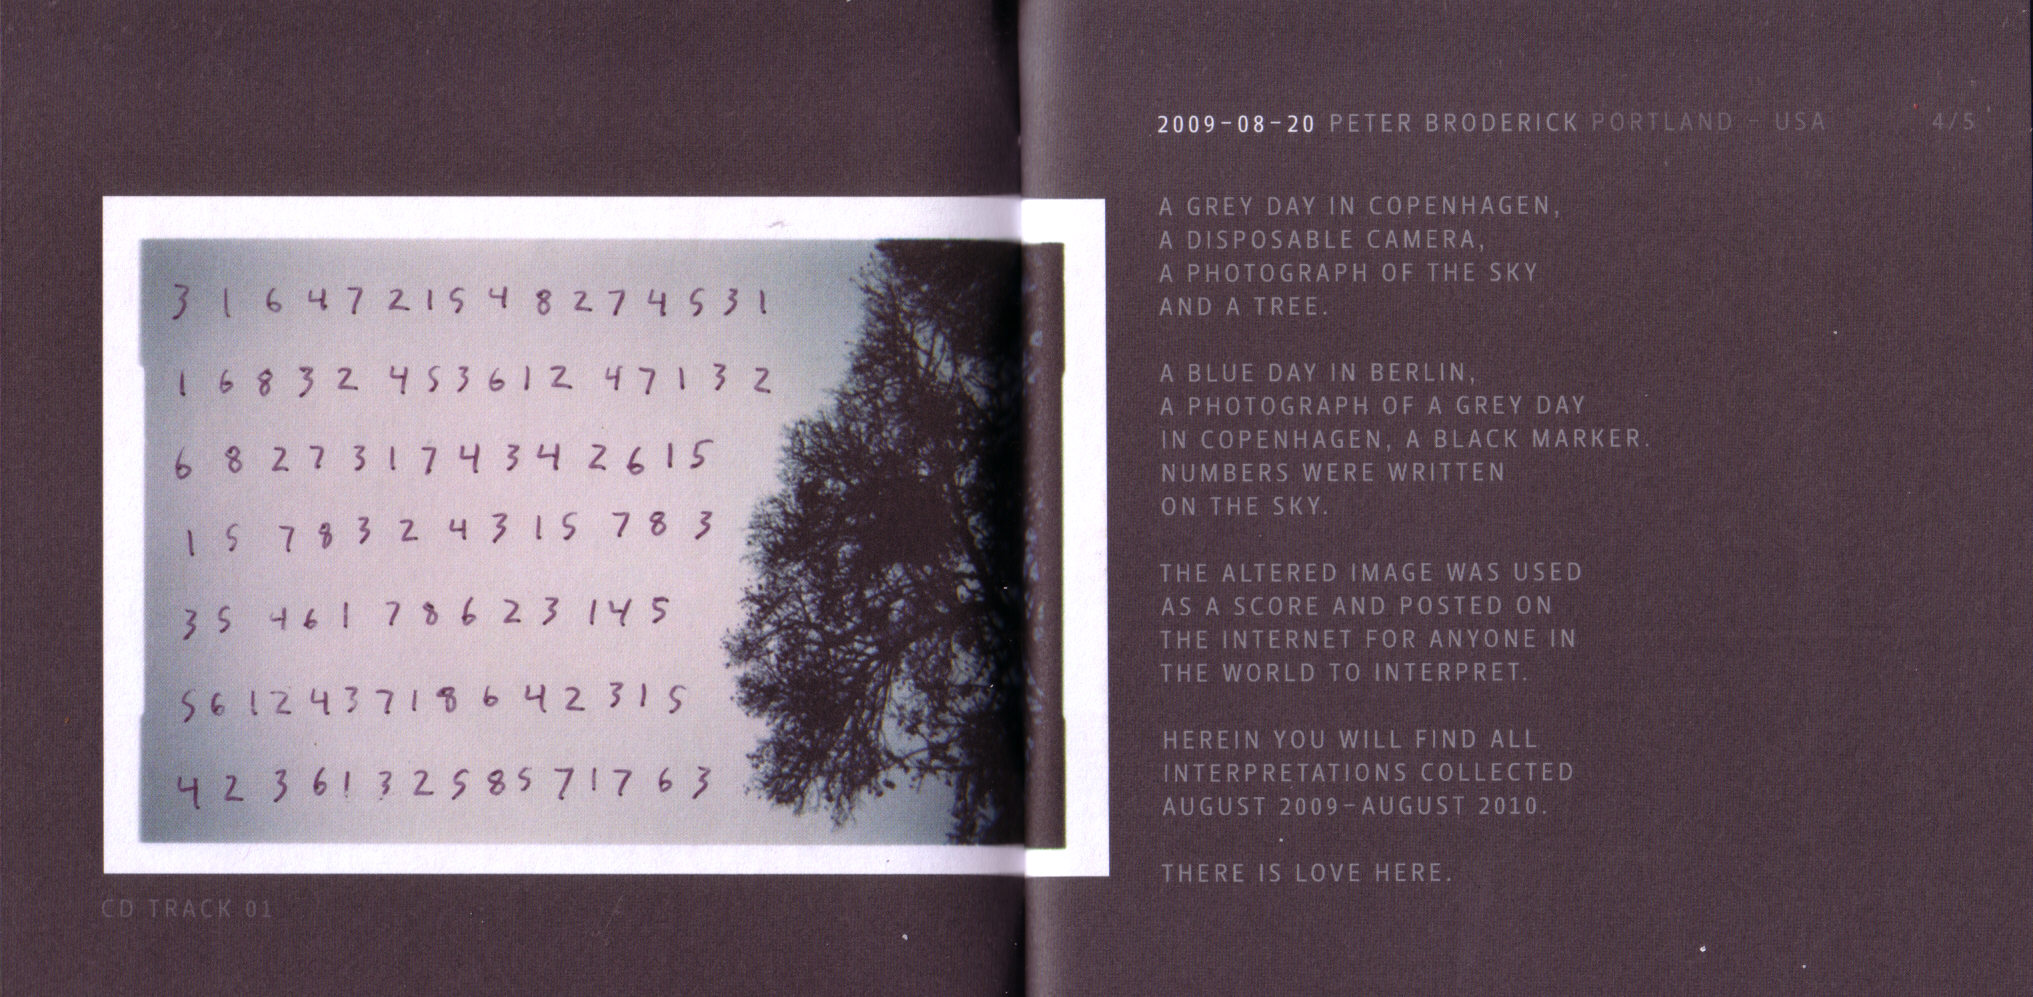 3 1 6 4 7 2 1 5 4 8 2 7 4 5 3 1
1 6 8 3 2 4 5 3 6 1 2 4 7 1 3 2
6 8 2 7 3 1 7 4 3 4 2 6 1 5
1 5 7 8 3 2 4 3 1 5 7 8 3
3 5 4 6 1 7 8 6 2 3 1 4 5
5 6 1 2 4 3 7 1 8 6 4 2 3 1 5
4 2 3 6 1 3 2 5 8 5 7 1 7 6 3
CD TRACK 01
2009-08-20 PETER BRODERICK PORTLAND - USA 4/5
A GREY DAY IN COPENHAGEN,
A DISPOSABLE CAMERA,
A PHOTOGRAPH OF THE SKY
AND A TREE.
A BLUE DAY IN BERLIN,
A PHOTOGRAPH OF A GREY DAY
IN COPENHAGEN, A BLACK MARKER.
NUMBERS WERE WRITTEN
ON THE SKY.
THE ALTERED IMAGE WAS USED
AS A SCORE AND POSTED ON
THE INTERNET FOR ANYONE IN
THE WORLD TO INTERPRET.
HEREIN YOU WILL FIND ALL
INTERPRETATIONS COLLECTED
AUGUST 2009-AUGUST 2010.
THERE IS LOVE HERE.